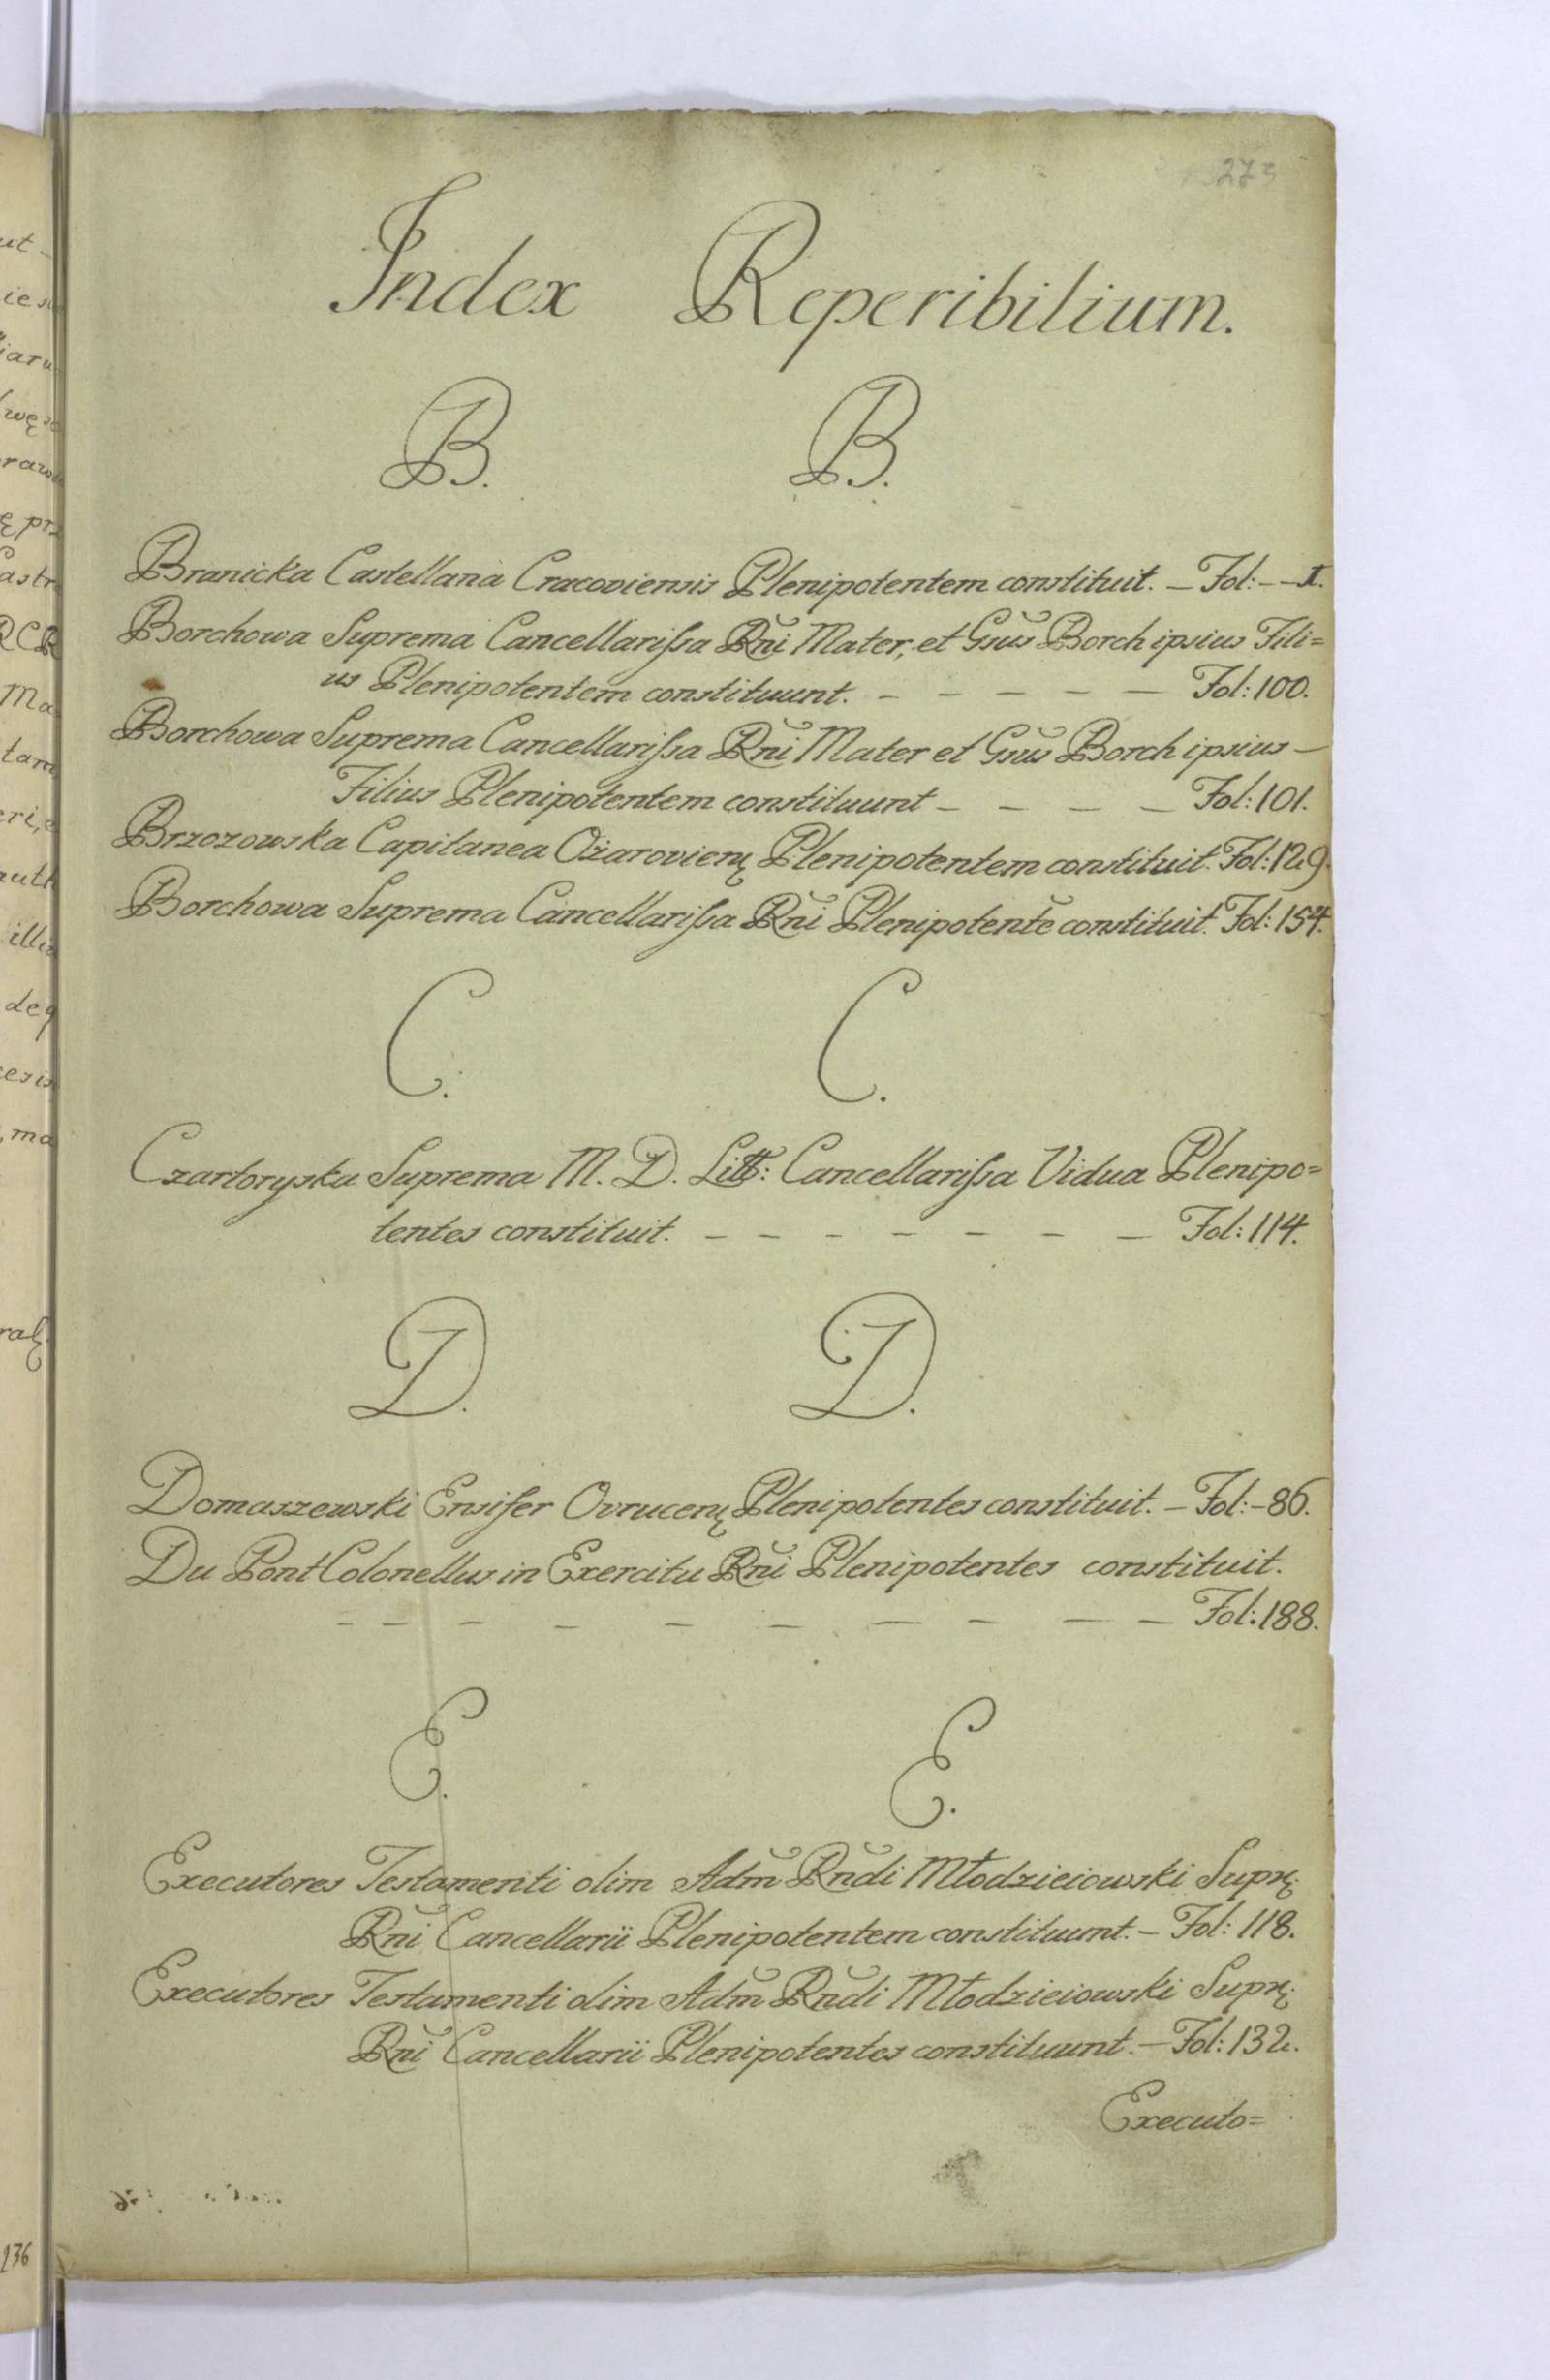 273
Index Reperibilium.
B. B.
Branicka Castellana Cracoviensis Plenipotentem constituit. — Fol: — 1.
Borchowa Suprema Cancellarißa Rni Mater, et Gsus Borch ipsius Fili=
us Plenipotentem constituunt. — — — — — Fol: 100.
Borchowa Suprema Cancellarißa Rni Mater et Gsus Borch ipsius —
Filius Plenipotentem constituunt — — — — Fol: 101.
Brzozowska Capitanea Ożarovien Plenipotentem constituit. Fol: 129.
Borchowa Suprema Cancellarißa Rni Plenipotente constituit. Fol: 154.
C. C.
Czartoryska Suprema M. D. Litt: Cancellarißa Vidua Plenipo=
tentes constituit. — — — — — — — Fol: 114.
D. D.
Domaszewski Ensifer Ovrucen Plenipotentes constituit. — Fol: — 86.
Du Pont Colonellus in Exercitu Rni Plenipotentes constituit.
— — — — — — — — — — Fol: 188.
E. E.
Executores Testamenti olim Adm Rndi Młodzieiowski Supr:
Rni Cancellarii Plenipotentem constituunt. — Fol: 118.
Executores Testamenti olim Adm Rndi Młodzieiowski Supr:
Rni Cancellarii Plenipotentes constituunt. — Fol: 132.
Executo=
136